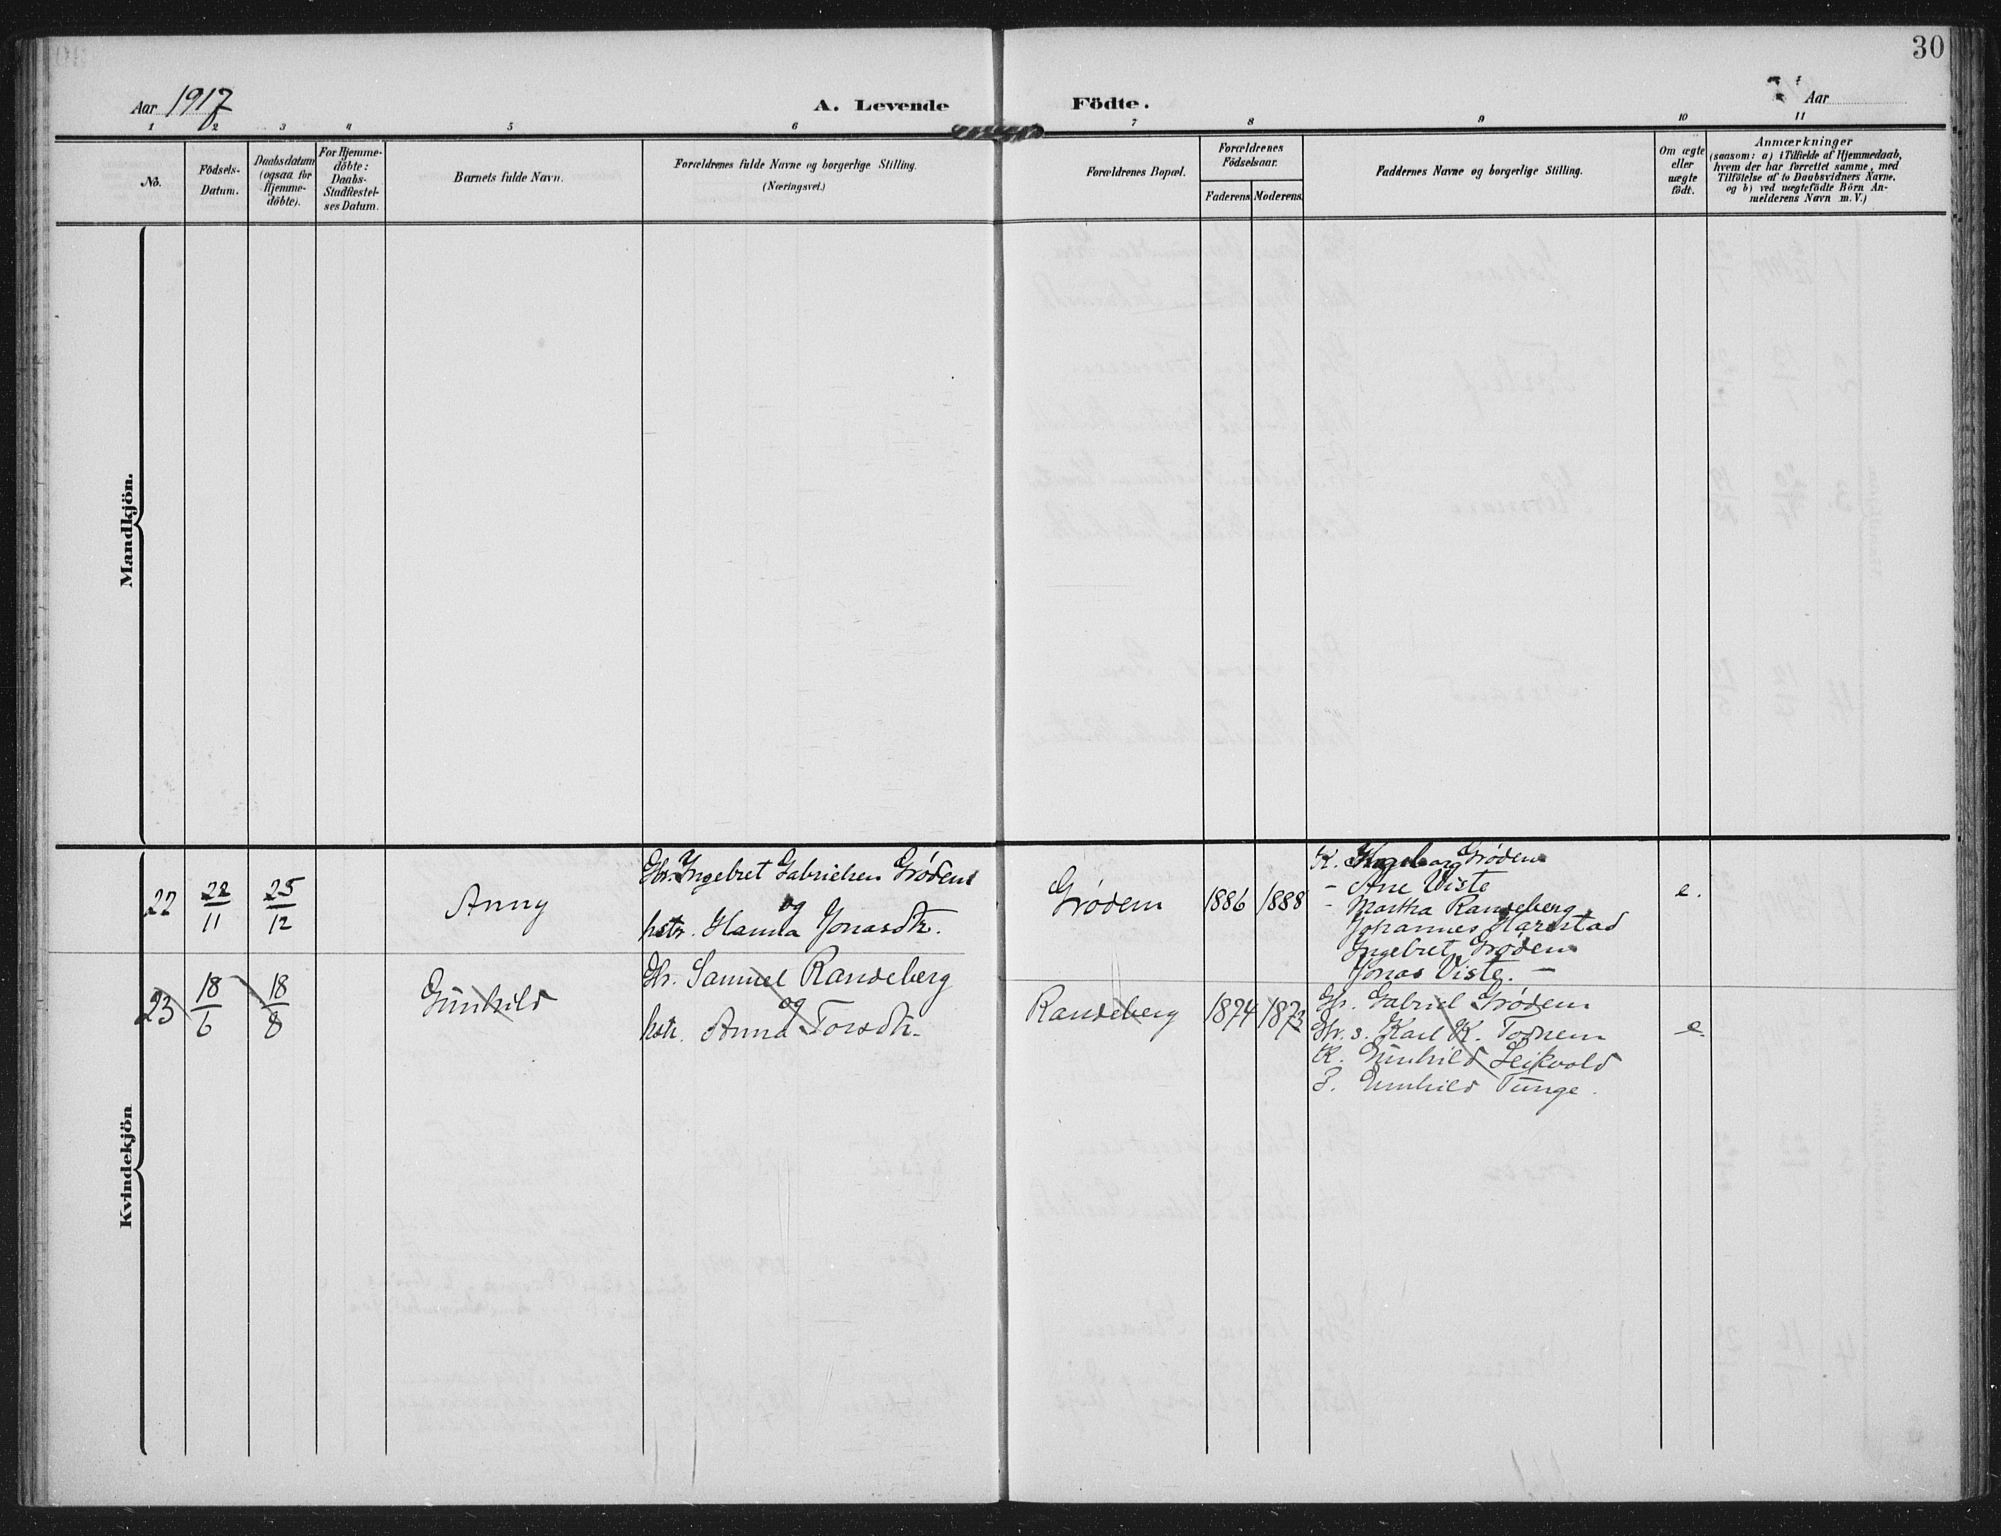 30
Aar 1917
A. Levende Födte.
Aar
1 2 3 4 5 6 7 8 9 10 11
No.
Födsels-
Datum.
Daabsdatum
(ogsaa for
Hjemme-
döbte).
For Hjemme-
döbte:
Daabs-
Stadfestel-
ses Datum.
Barnets fulde Navn.
Forældrenes fulde Navne og borgerlige Stilling.
(Næringsvei.)
Forældrenes Bopæl.
Forældrenes
Födselsaar.
Faderens Moderens
Faddernes Navne og borgerlige Stilling.
Om ægte
eller
uægte
födt.
Anmærkninger
(saasom: a) i Tilfælde af Hjemmedaab,
hvem der har forrettet samme, med
Tilföielse af to Daabsvidners Navne,
og b) ved uægtefödte Börn An-
melderens Navn m. V.)
Mandkjön.
Kvindekjön
22
22
11
25
12
Anny
Gbr. Ingebret Gabrielsen Grødem
og
hstr. Hanna Jonasdtr.
Grødem
1886
1888
K. Ingeborg Grødem
- Ane Viste
- Martha Randeberg
Johannes Harestad
Ingebret Grødem
Jonas Viste. -
e.
23
18
6
18
8
Gunhild
Gbr. Samuel Randeberg
og
hstr. Anna Torsdtr.
Randeberg
1874
1873
Gbr. Gabriel Grødem
Gbr. s. Karl K. Todnem
K. Gunhild Leikvold
P. Gunhild Tunge.
e.